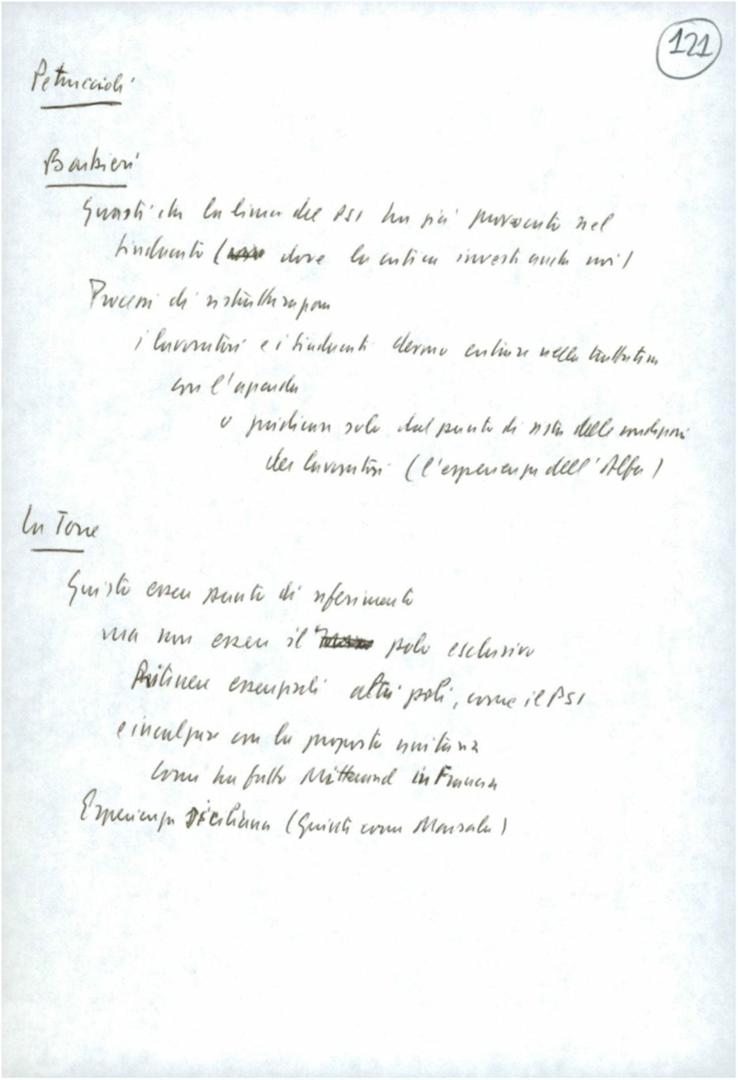 121
Petruccioli
Barbieri
Guasti che la linea del PSI ha già provocato nel
sindacato (dove la critica investe anche noi)
Processi di ristrutturazione
i lavoratori e i sindacati devono entrare nella trattativa
con l'azienda
o giudicare solo dal punto di vista delle condizioni
dei lavoratori (l'esperienza dell'Alfa)
La Torre
Giusto essere punto di riferimento
ma non essere il polo esclusivo
Ritenere essenziali altri poli, come il PSI
e incalzare con la proposta unitaria
come ha fatto Mitterand in Francia
Esperienza Siciliana (Giunti come Marsala)